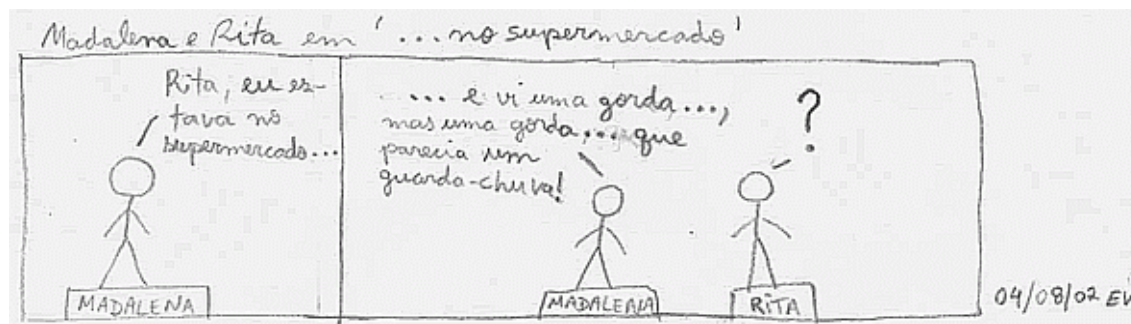 Madalena e Rita em '...no supermercado'
Rita, eu es-
tava no
supermercado...
MADALENA
... e vi uma gorda...,
mas uma gorda,... que
parecia um
guarda-chuva!
?
MADALENA
RITA
04/08/02 EV